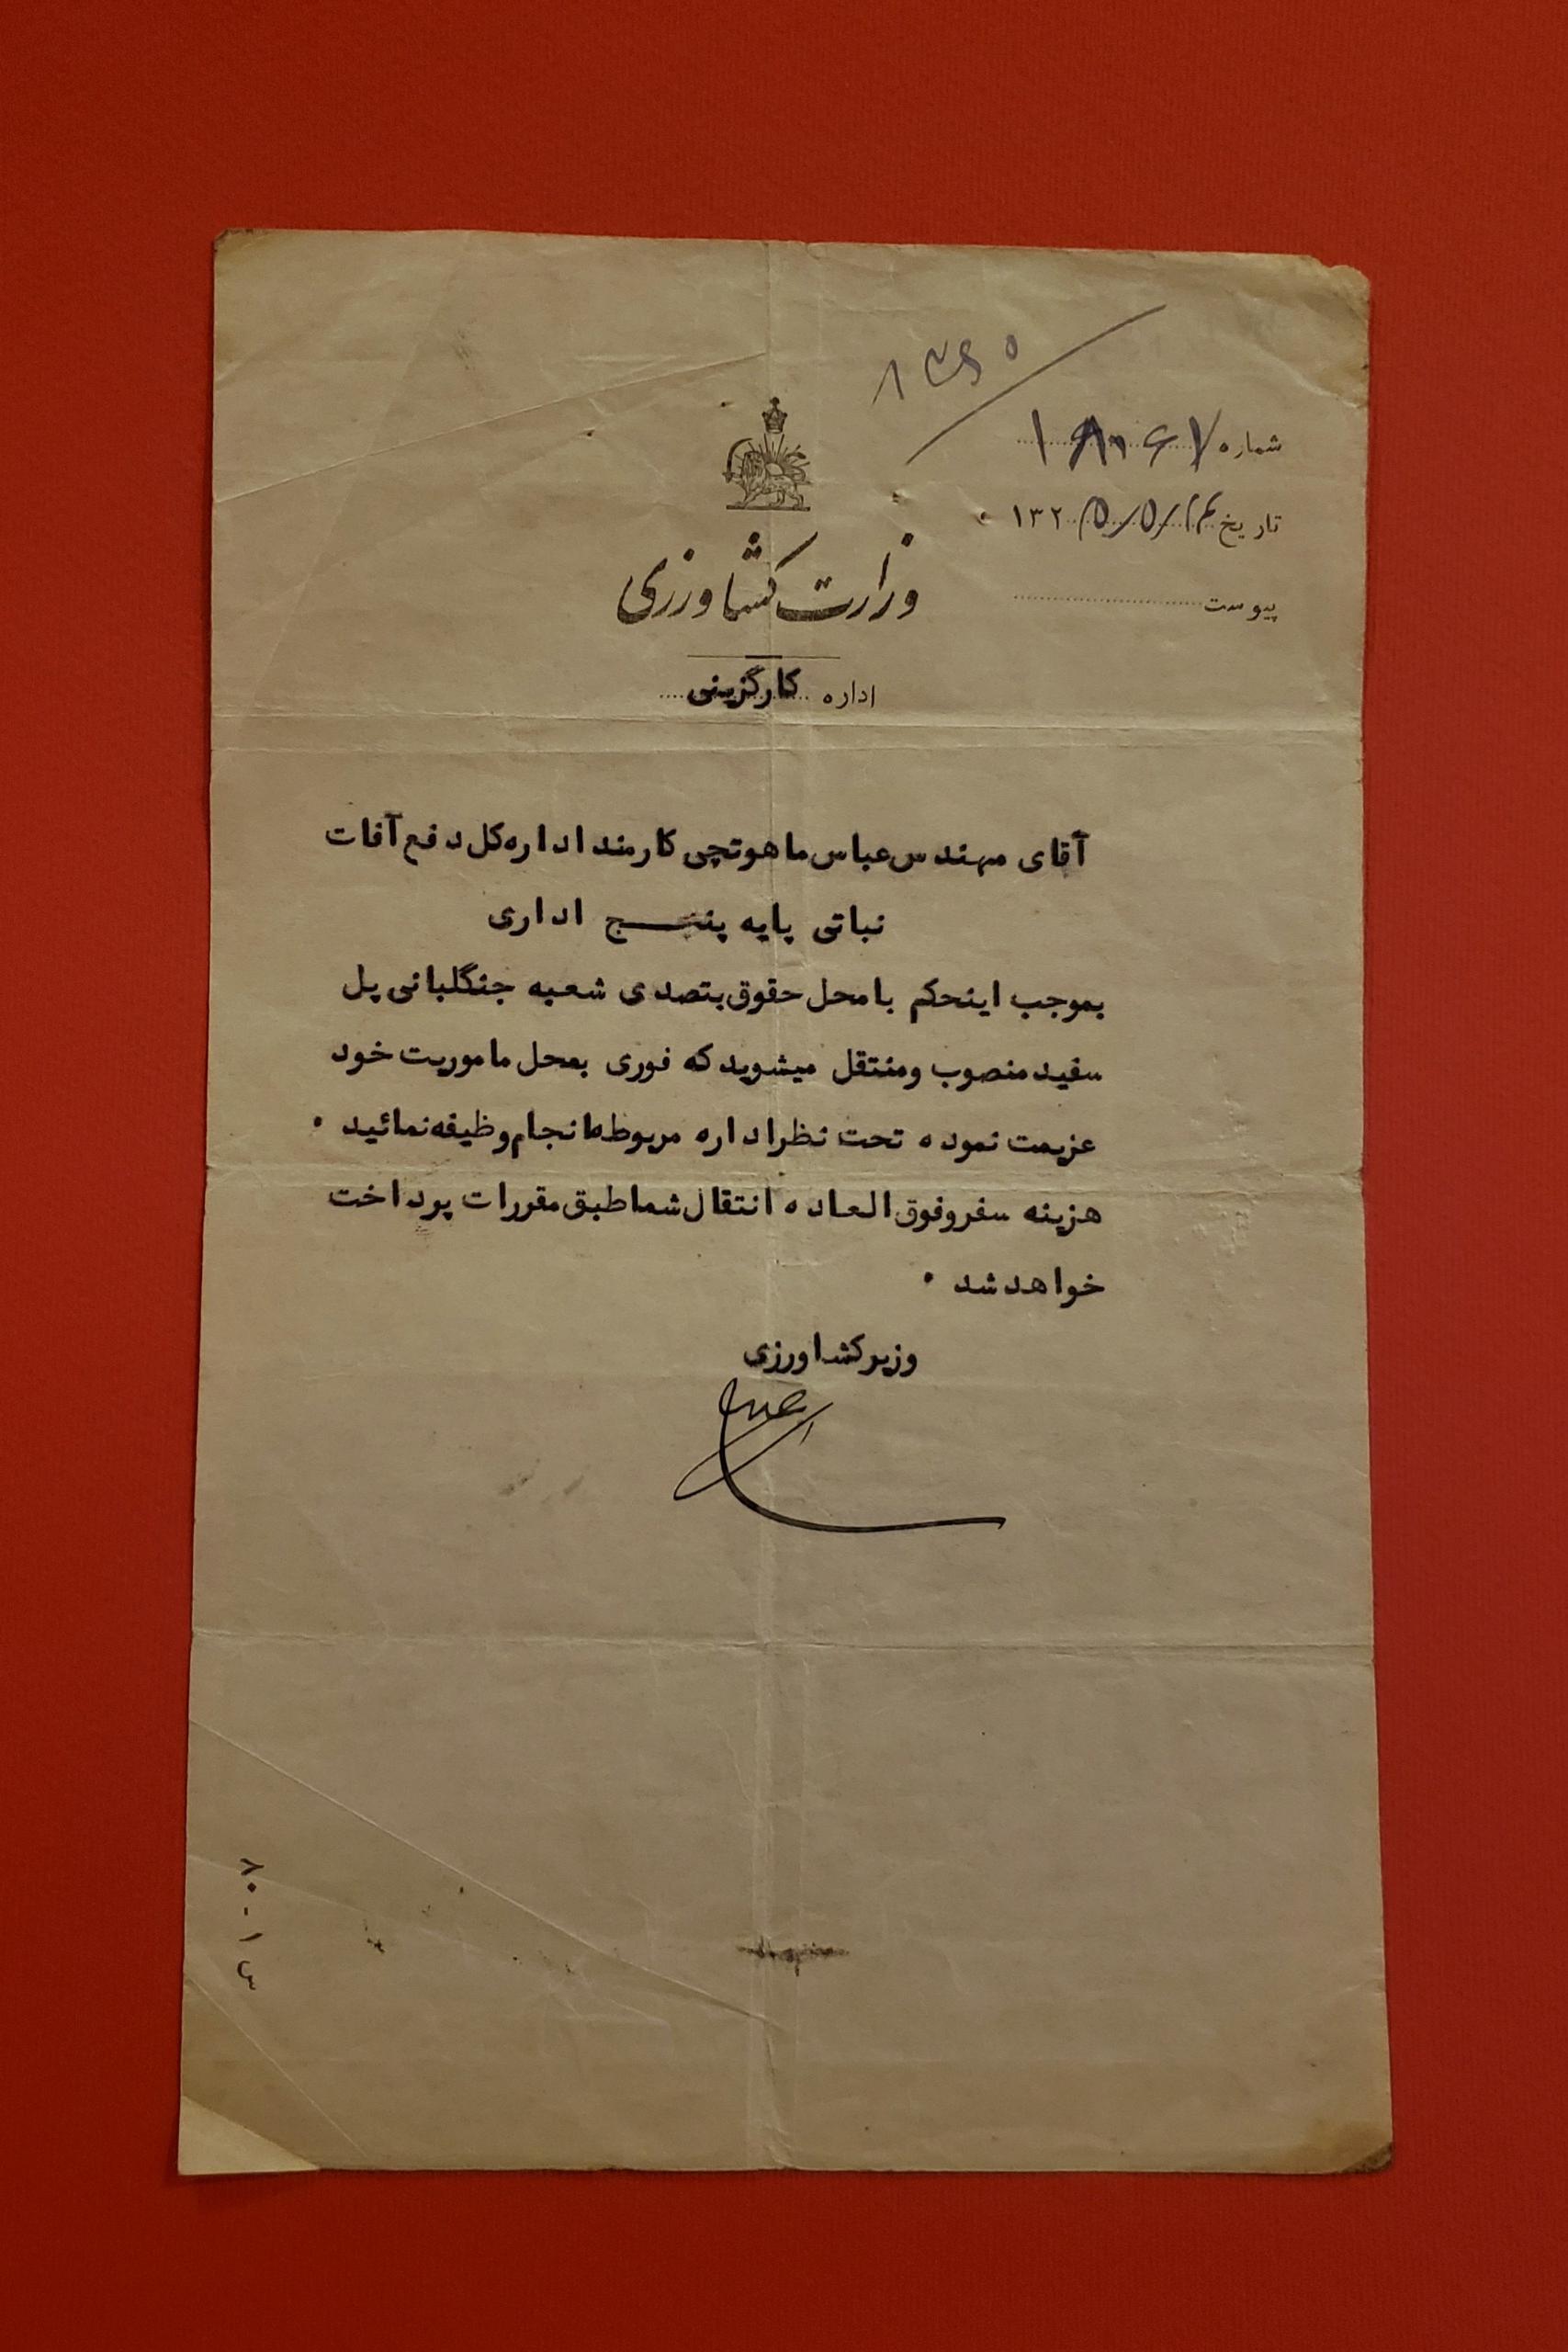 شماره
تاریخ ۱۳۲۵/۵/۱۴
پیوست
وزارت کشاورزی
اداره کارگزینی
آقای مهندس عباس ماهوتچی کارمند اداره کل دفع آفات
نباتی پایه پنج اداری
بموجب اینحکم بامحل حقوق بتصدی شعبه جنگلبانی پل
سفید منصوب ومنتقل میشوید که فوری بمحل ماموریت خود
عزیمت نموده تحت نظر اداره مربوطه انجام وظیفه نمائید .
هزینه سفر وفوق العاده انتقال شما طبق مقررات پرداخت
خواهد شد .
وزیر کشاورزی